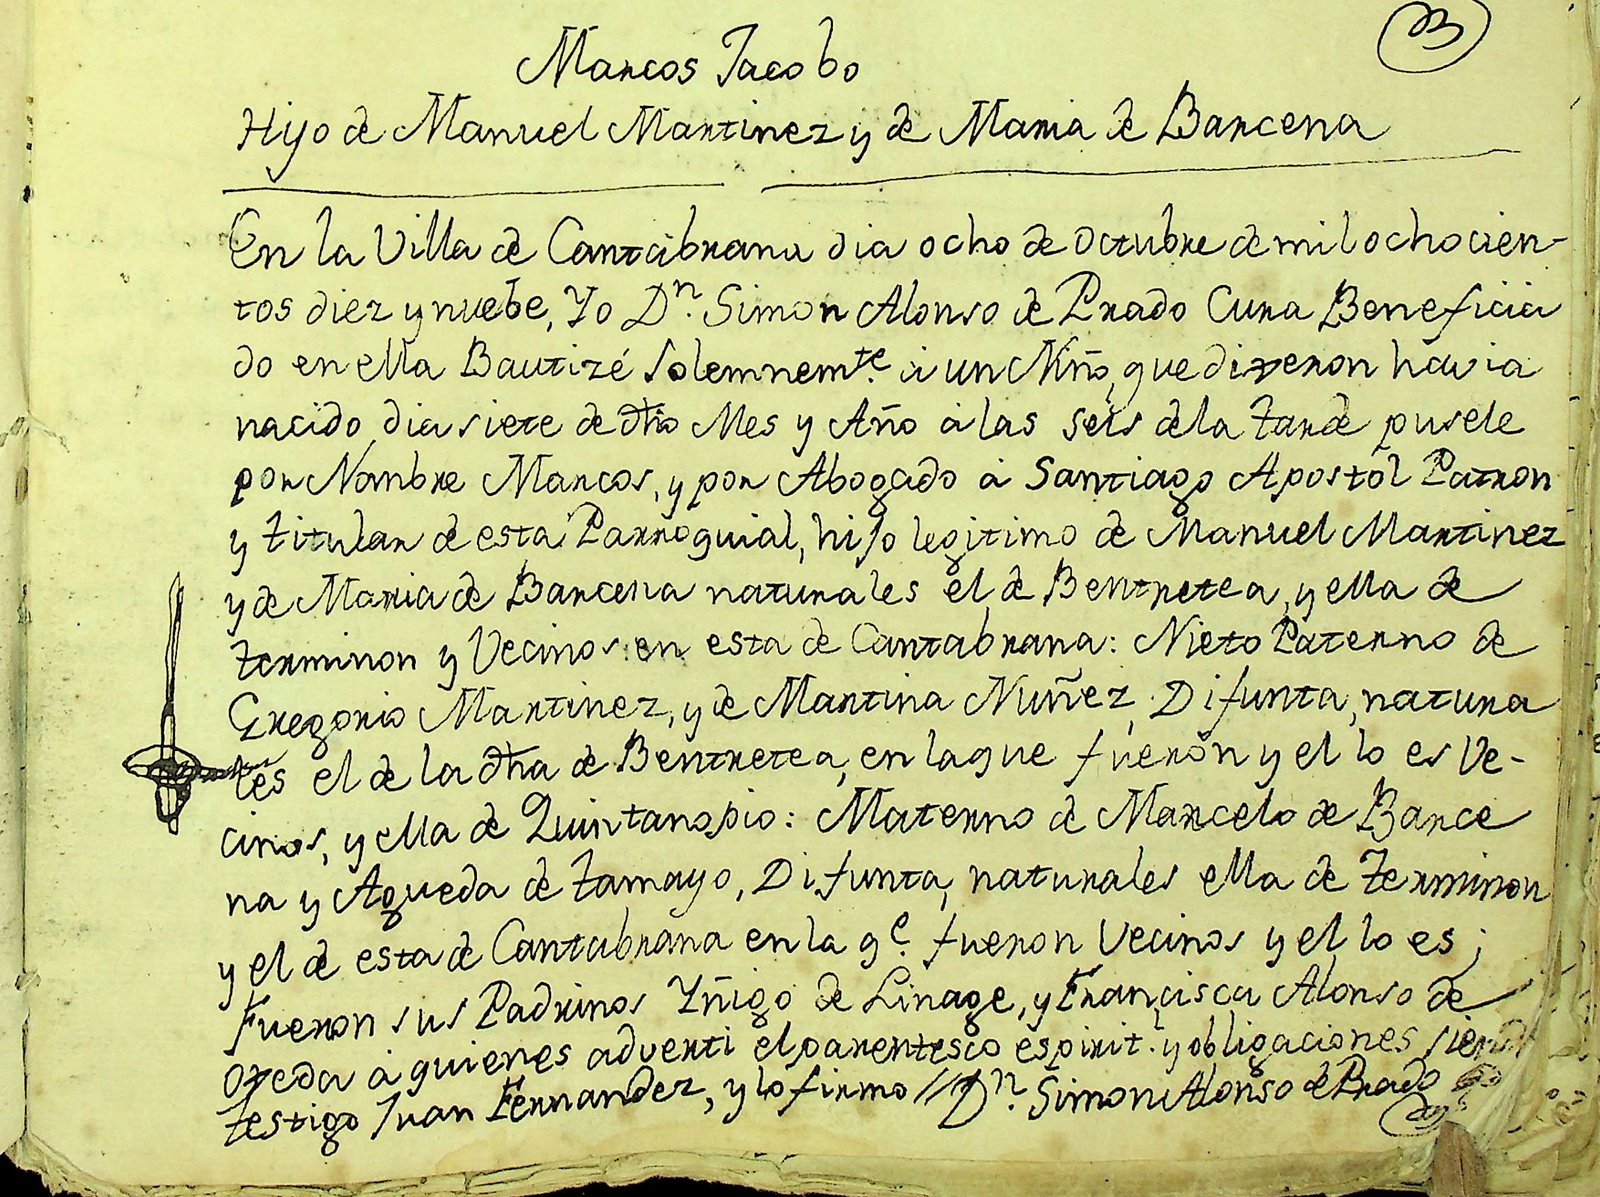 Marcos Jacobo
Hijo de Manuel Martinez y de Maria de Barcena
En la Villa de Cantabrana dia ocho de Octubre de mil ochocien-
tos diez y nuebe, Yo Dn. Simon Alonso de Prado Cura Beneficia
do en ella Bautizé solemnemte. à un Niño, que dixeron havia
nacido dia siete de dho Mes y Año à las seis de la tarde pusele
por Nombre Marcos, y por Abogado à Santiago Apostol Patron
y titular de esta Parroquial, hijo legitimo de Manuel Martinez
y de Maria de Barcena naturales el de Bentretea, y ella de
terminon y Vecinos en esta de Cantabrana: Nieto Paterno de
Gregorio Martinez, y de Martina Nuñez, Difunta, natura
les el de la dha de Bentretea, en la que fuerón y el lo es Ve-
cinos, y ella de Quintanopio: Materno de Marcelo de Barce
na y Agueda de tamayo, Difunta, naturales ella de terminon
y el de esta de Cantabrana en la qe. fueron Vecinos y el lo es;
Fueron sus Padrinos Yñigo de Linage, y Francisca Alonso de
Ojeda à quienes adverti el parentesco espirit.l y obligaciones siendo
testigo Juan Fernandez, y lo firmo // Dn. Simon Alonso de Prado